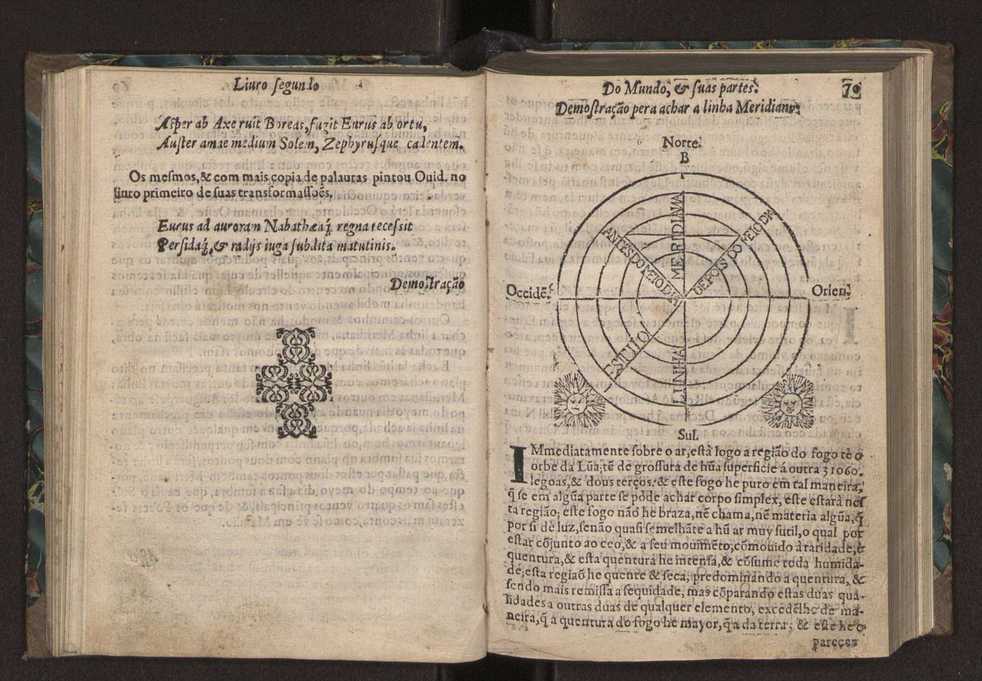 Liuro segundo
Asper ab Axe ruit Boreas, fugit Eurus ab ortu,
Auster amat medium Solem, Zephyrusque cadentem.
Os mesmos, & com mais copia de palauras pintou Ouid. no
liuro primeiro de suas transformassoẽs.
Eurus ad auroram Nabathæaq́; regna recessit
Persidaq́;, & radijs iuga subdita matutinis.
Demostração
Do Mundo, & suas partes.
70
Demostração pera achar a linha Meridiana.
Norte.
B
ANTES DO MEIO DIA
MERIDIANA
DEPOIS DO MEIO DIA
Occidẽ.
Orien.
ESTILO
LINHA
Sul.
IMmediatamente sobre o ar, està logo a região do fogo tè o
orbe da Lũa, tẽ de grossura de hũa superficie à outra 31060.
legoas, & dous terços: & este fogo he puro em tal maneira,
q̃ se em algũa parte se pòde achar corpo simplex, este estarà nes
ta região; este fogo não he braza, nẽ chama, nẽ materia algũa, q̃
por si dè luz, senão quasi semelhãte a hũ ar muy sutil, o qual por
estar cõjunto ao ceo, & a seu mouimẽto, cõmouido à raridade, &
quentura, & esta quentura he intensa, & cõsume toda humida-
de, esta região he quente & seca, predominando a quentura, &
sendo mais remissa a sequidade, mas cõparando estas duas qua-
lidades a outras duas de qualquer elemento, excedẽlhe de ma-
neira, q̃ a quentura do fogo he mayor, q̃ a da terra; & este he o
pareçer